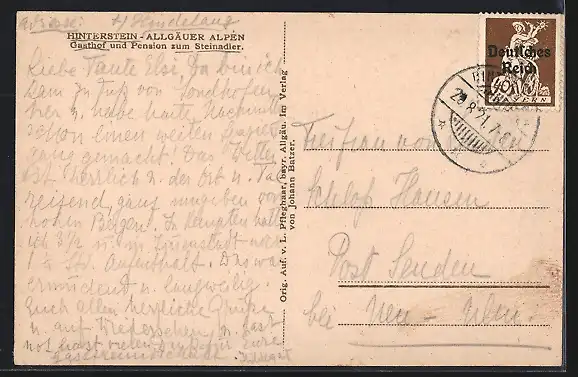 Adresse: b/ Hindelang
HINTERSTEIN - ALLGÄUER ALPEN
Gasthof und Pension zum Steinadler.
Liebe Tante Elsi, Da bin ich
dann zu Fuß von Sonthofen
her u. habe heute Nachmittag
schon einen weiten Spazier
gang gemacht. Das Wetter
ist herrlich u. der Ort u. Tal
reizend, ganz umgeben von
hohen Bergen. In Kempten hatte
ich 3½ u. in Immenstadt noch
1 u. Std. Aufenthalt. Das war
ermüdend u. langweilig.
Euch allen herzliche Grüße
u. auf Wiedersehen, u. hast
not hast vielen Dank für Eure
Gastfreundschaft.
Orig. Auf. v. L. Pfleghaar, bayr. Allgäu. Im Verlag
von Johann Batzer.
Deutsches
Reich
BAYERN
28.8.21. 7-8
Freifrau von
Schloß Hausen
Post Senden
bei Neu-Ulm.